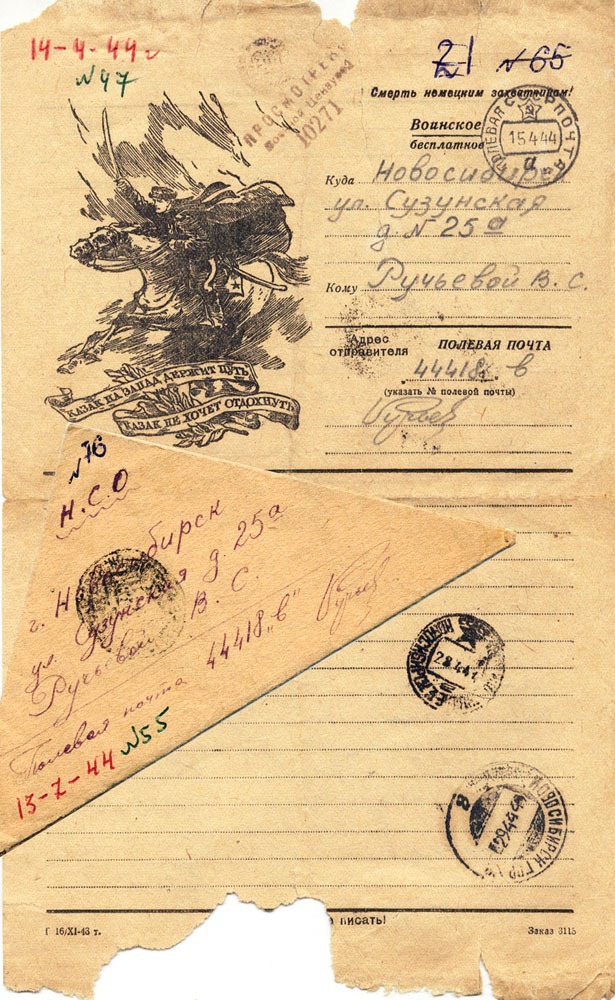 14-4-44г
N47
21 N65
ПРОСМОТРЕНО
Военной Цензурой
10271
Смерть немецким захватчикам!
Воинское
бесплатное
ПОЛЕВАЯ ПОЧТА
15 4 44
Куда Новосибирск
ул. Сузунская
д N 25а
Кому Ручьевой В. С.
Адрес отправителя
ПОЛЕВАЯ ПОЧТА
44418 в
(указать № полевой почты)
КАЗАК НА ЗАПАД ДЕРЖИТ ПУТЬ
КАЗАК НЕ ХОЧЕТ ОТДОХНУТЬ
N76
Н.С.О
г. Новосибирск
ул. Сузунская д. 25а
Ручьевой В. С.
Полевая почта 44418 „в"
13-7-44 N55
НОВОСИБИРСК
НОВОСИБИРСК ГОР
29 4 44
писать!
Г 16/XI-43 т.
Заказ 3115